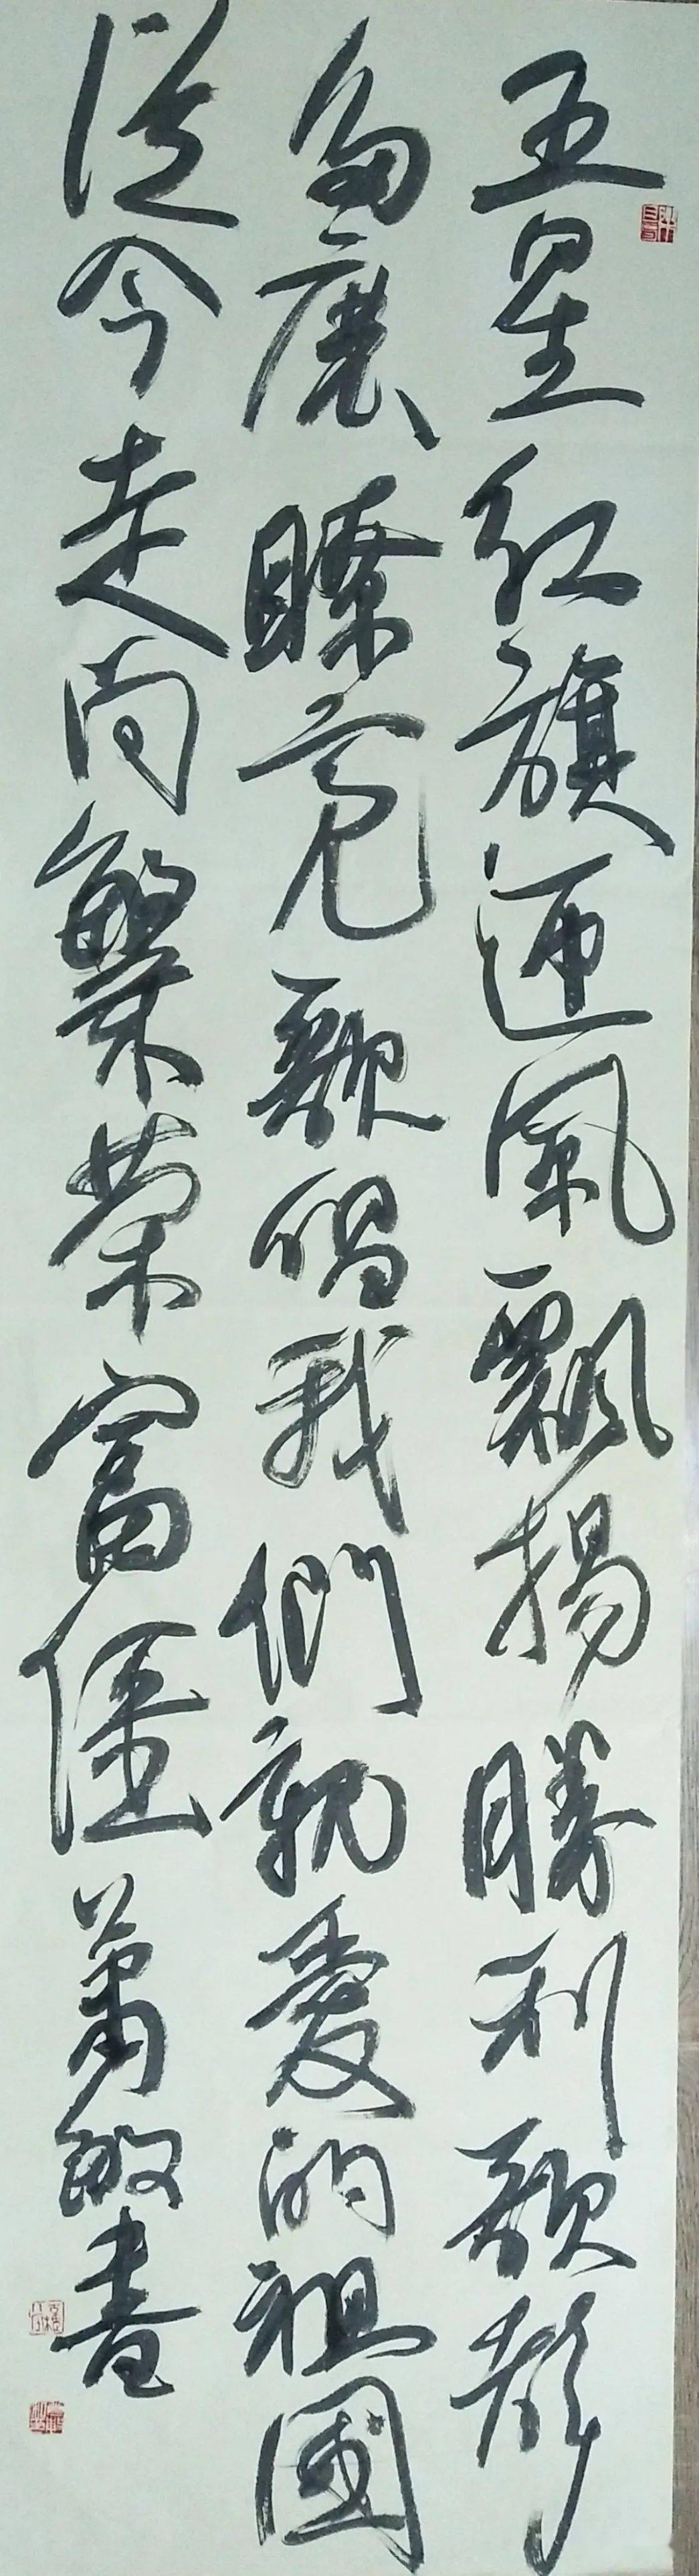 五星紅旗迎風飄揚勝利歌聲
多麼瞭亮歌唱我們親愛的祖國
從今走向繁榮富彊蕭敏書